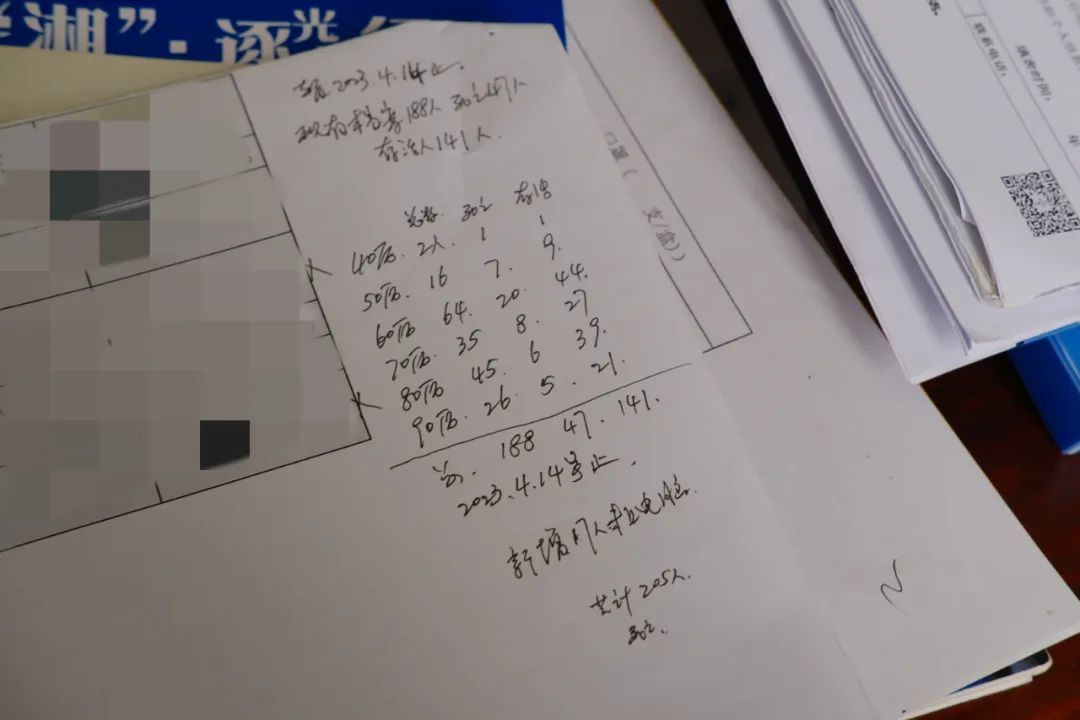 湘”·逐光
截至2023.4.14止.
现有档案188人 死亡47人
存活人141人.
总数. 死亡 存活
40后. 2人. 1 1
50后. 16 7. 9.
60后 64. 20. 44.
70后. 35 8. 27
80后 45. 6 39.
90后. 26. 5. 21.
总. 188 47. 141.
2023.4.14号止.
共计205人.
死亡.
口罩(
支/盒))
联系电话:
填表时间:
年